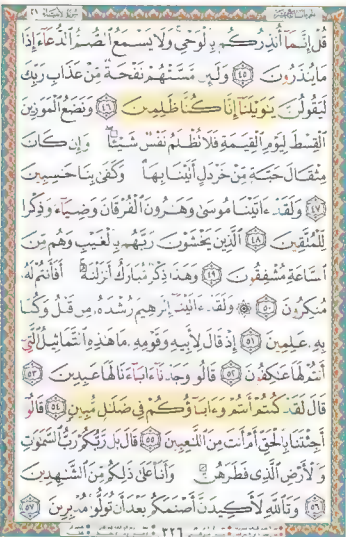 سورة الأنبياء ٢١
قُلْ إِنَّمَا أُنذِرُكُم بِالْوَحْيِ وَلَا يَسْمَعُ الصُّمُّ الدُّعَاءَ إِذَا
مَا يُنذَرُونَ ٤٥ وَلَئِن مَّسَّتْهُمْ نَفْحَةٌ مِّنْ عَذَابِ رَبِّكَ
لَيَقُولُنَّ يَٰوَيْلَنَا إِنَّا كُنَّا ظَٰلِمِينَ ٤٦ وَنَضَعُ الْمَوَٰزِينَ
الْقِسْطَ لِيَوْمِ الْقِيَٰمَةِ فَلَا تُظْلَمُ نَفْسٌ شَيْـًٔا وَإِن كَانَ
مِثْقَالَ حَبَّةٍ مِّنْ خَرْدَلٍ أَتَيْنَا بِهَا وَكَفَىٰ بِنَا حَٰسِبِينَ
٤٧ وَلَقَدْ ءَاتَيْنَا مُوسَىٰ وَهَٰرُونَ الْفُرْقَانَ وَضِيَاءً وَذِكْرًا
لِّلْمُتَّقِينَ ٤٨ الَّذِينَ يَخْشَوْنَ رَبَّهُم بِالْغَيْبِ وَهُم مِّنَ
السَّاعَةِ مُشْفِقُونَ ٤٩ وَهَٰذَا ذِكْرٌ مُّبَارَكٌ أَنزَلْنَٰهُ أَفَأَنتُمْ لَهُ
مُنكِرُونَ ٥٠ ۞ وَلَقَدْ ءَاتَيْنَا إِبْرَٰهِيمَ رُشْدَهُ مِن قَبْلُ وَكُنَّا
بِهِ عَٰلِمِينَ ٥١ إِذْ قَالَ لِأَبِيهِ وَقَوْمِهِ مَا هَٰذِهِ التَّمَاثِيلُ الَّتِي
أَنتُمْ لَهَا عَٰكِفُونَ ٥٢ قَالُوا وَجَدْنَا ءَابَاءَنَا لَهَا عَٰبِدِينَ ٥٣
قَالَ لَقَدْ كُنتُمْ أَنتُمْ وَءَابَاؤُكُمْ فِي ضَلَٰلٍ مُّبِينٍ ٥٤ قَالُوا
أَجِئْتَنَا بِالْحَقِّ أَمْ أَنتَ مِنَ اللَّٰعِبِينَ ٥٥ قَالَ بَل رَّبُّكُمْ رَبُّ السَّمَٰوَٰتِ
وَالْأَرْضِ الَّذِي فَطَرَهُنَّ وَأَنَا عَلَىٰ ذَٰلِكُم مِّنَ الشَّٰهِدِينَ
٥٦ وَتَاللَّهِ لَأَكِيدَنَّ أَصْنَٰمَكُم بَعْدَ أَن تُوَلُّوا مُدْبِرِينَ ٥٧
٣٢٦